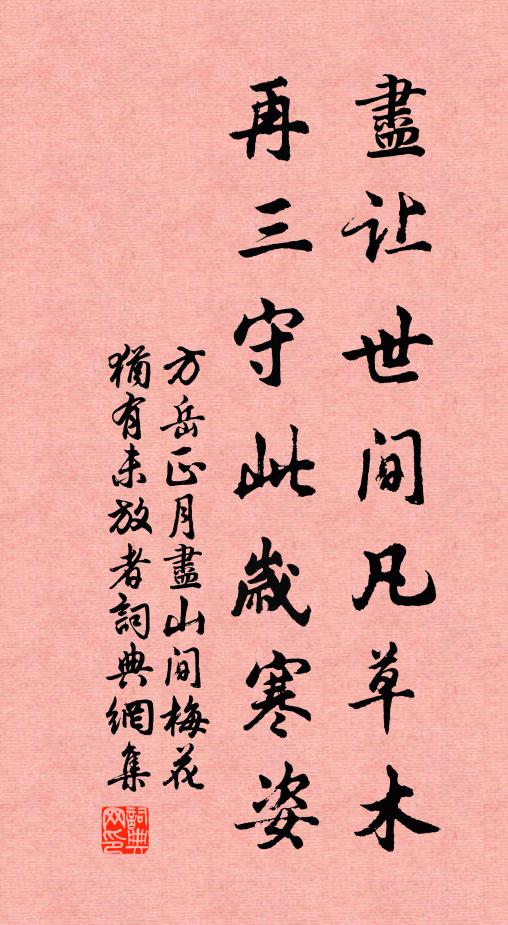 盡让世间凡草木
再三守此歲寒姿
方岳正月盡山间梅花
猶有未放者詞典網集
詞典
网印